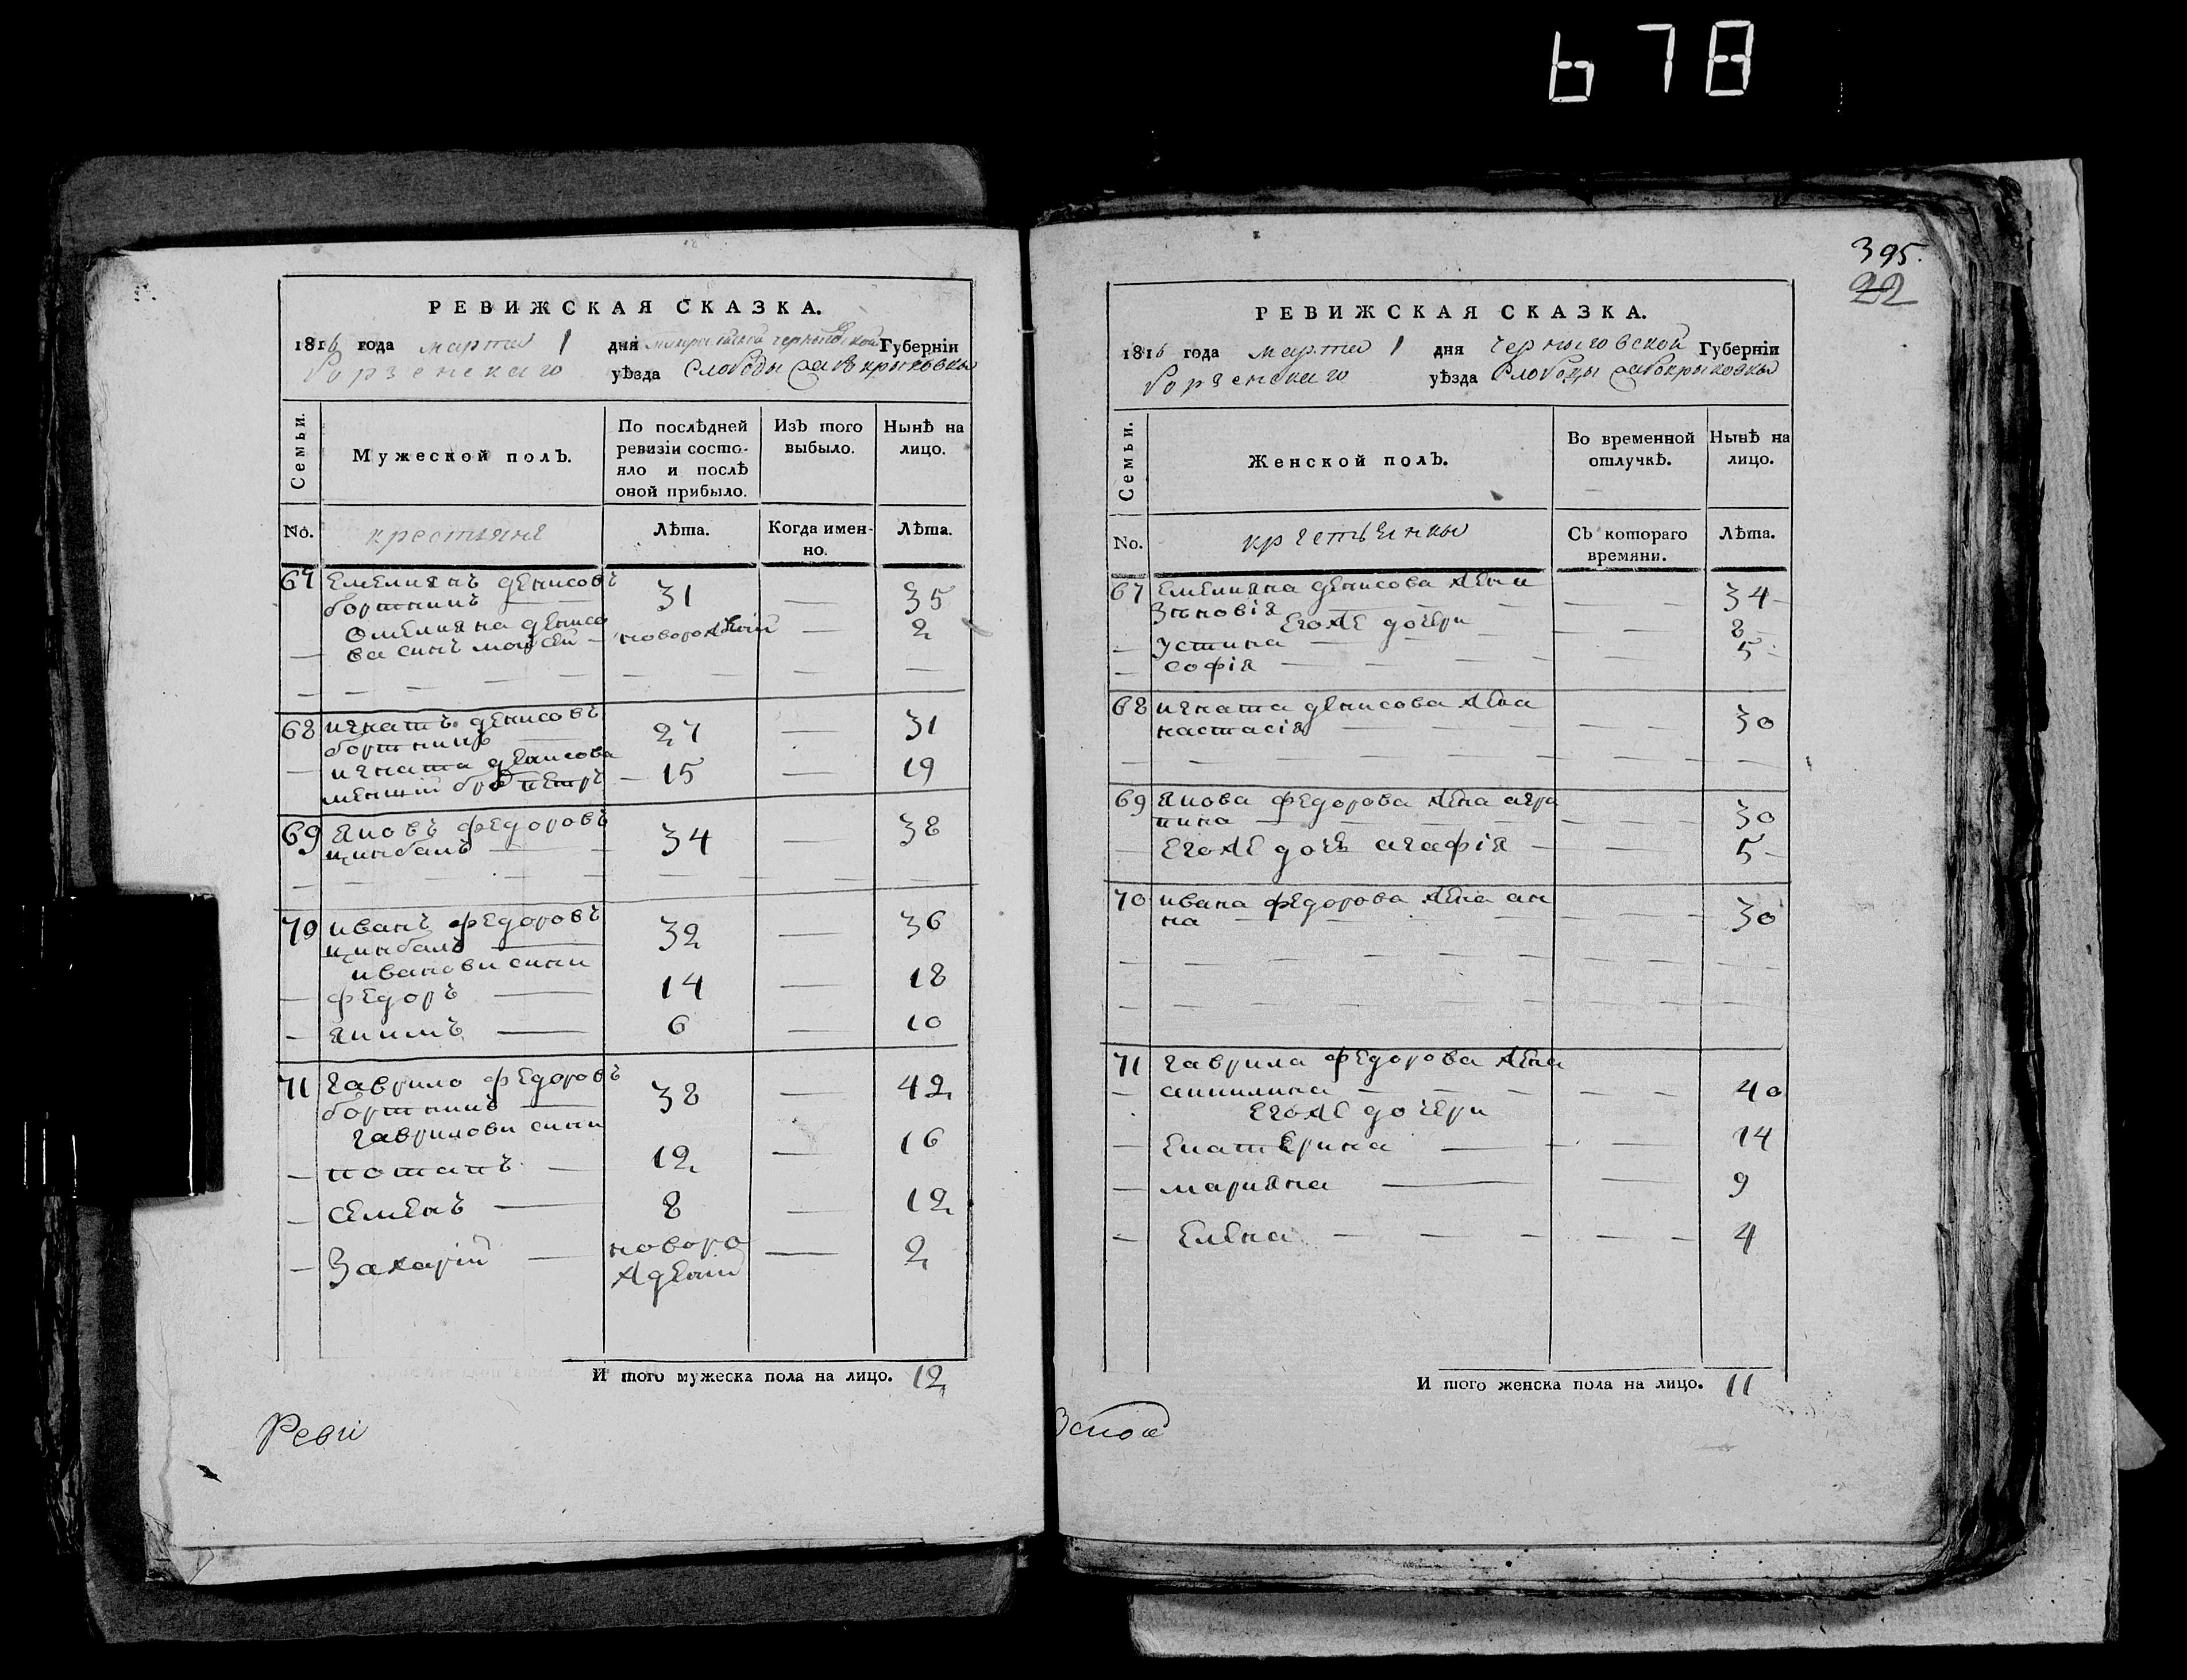 678
РЕВИЖСКАЯ СКАЗКА.
1816 года марта 1 дня черниговской Губерніи
Борзенскаго уѣзда Слободы
Семьи.
Мужеской полъ.
По послѣдней ревизіи состояло и послѣ оной прибыло.
Изъ того выбыло.
Нынѣ на лицо.
No. крестьяне Лѣта. Когда именно. Лѣта.
67 Емелиянъ денисовъ
бортникъ — 31 — 35
Омелияна дениса
— ва синъ мойсей — новорожденій — 2
68 игнатъ денисовъ
бортникъ — 27 — 31
— игната денисова
менший братъ петръ — 15 — 19
69 яковъ федоровъ
цинбалъ — 34 — 38
70 иванъ федоровъ
цинбалъ — 32 — 36
иванови сини
— федоръ — 14 — 18
— якимъ — 6 — 10
71 гаврило федоровъ
бортникъ — 38 — 42
гаврилови сини
— потапъ — 12 — 16
— семенъ — 8 — 12
— Захарій — новоро
жденій — 2
И того мужеска пола на лицо. 12
Реви
395.
22
РЕВИЖСКАЯ СКАЗКА.
1816 года марта 1 дня Черниговской Губерніи
Борзенскаго уѣзда Слободы
Семьи.
Женской полъ.
Во временной отлучкѣ.
Нынѣ на лицо.
No. крестьянки Съ котораго времяни. Лѣта.
67 Емелияна денисова жена
Зѣновія — — 34
Егоже дочери
— устина — — 8
— софія — — 5
68 игната денисова жена
настасія — — 30
69 якова федорова жена агри
пина — — 30
— Егоже дочь агафія — — 5
70 ивана федорова жена ан
на — — 30
71 гаврила федорова жена
— акилина — — 40
Егоже дочери
— Екатерина — — 14
— марияна — — 9
— Елена — — 4
И того женска пола на лицо. 11